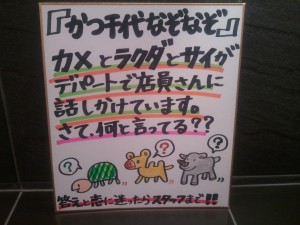 『かつ千代なぞなぞ』
カメとラクダとサイが
デパートで店員さんに
話しかけています。
さて、何と言ってる??
?
?
?
答えと恋に迷ったらスタッフまで!!